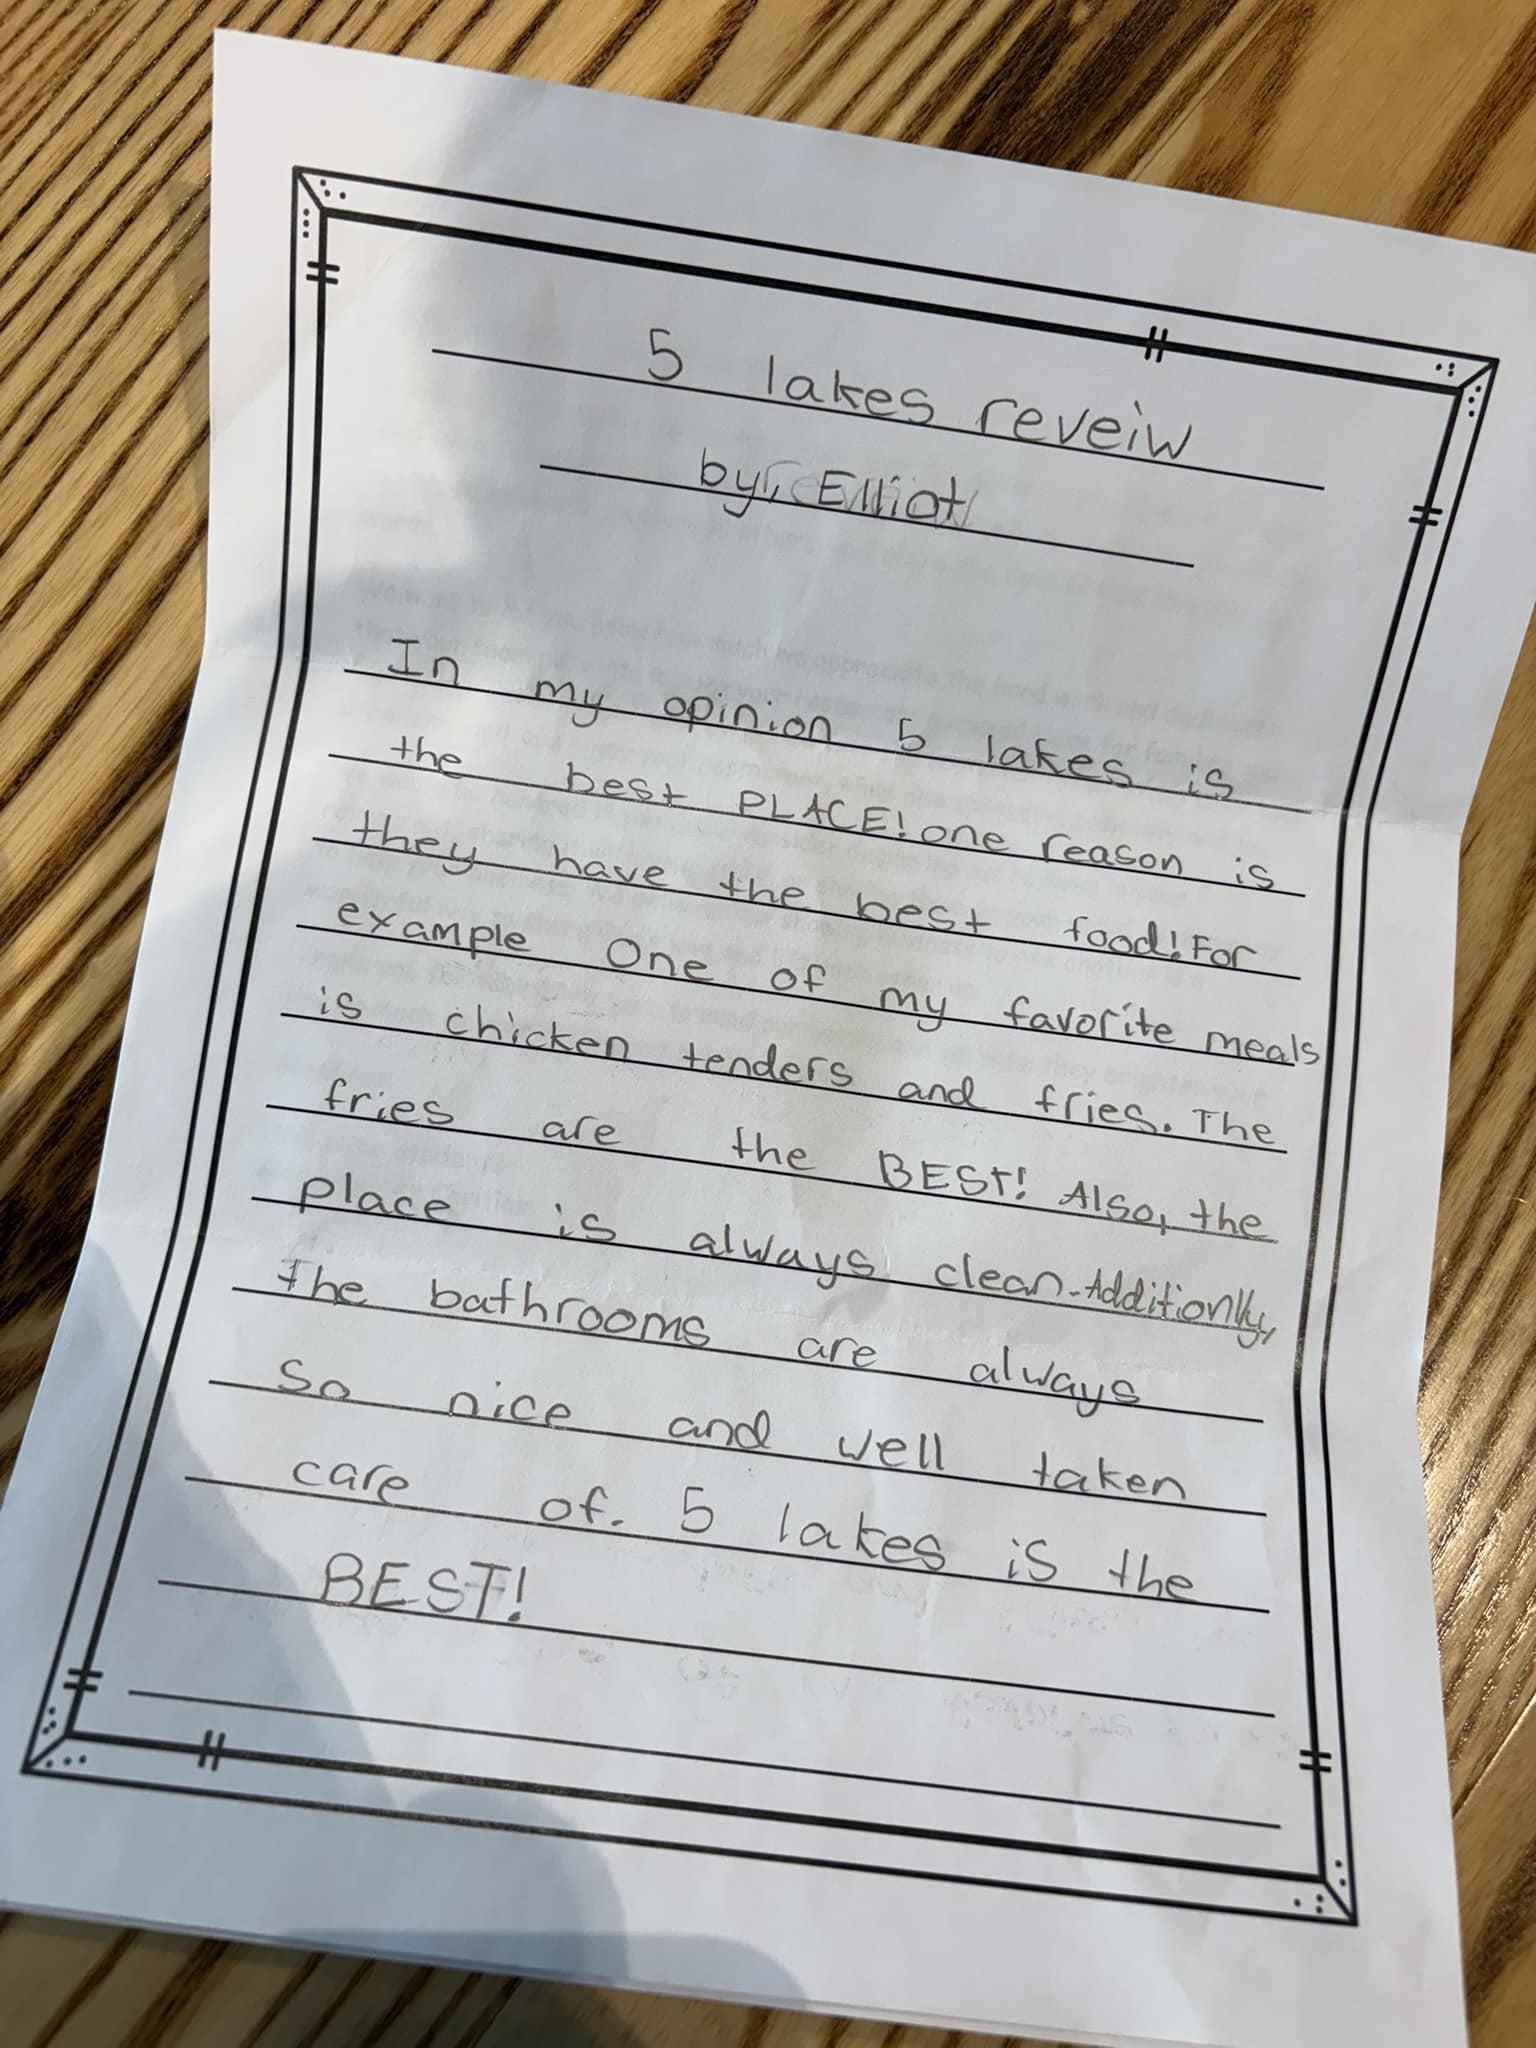 5 lakes reveiw
by, Elliot
In my opinion 5 lakes is
the best PLACE! one reason is
they have the best food! For
example One of my favorite meals
is chicken tenders and fries. The
fries are the BEST! Also, the
place is always clean. Additionly,
the bathrooms are always
So nice and well taken
care of. 5 lakes is the
BEST!